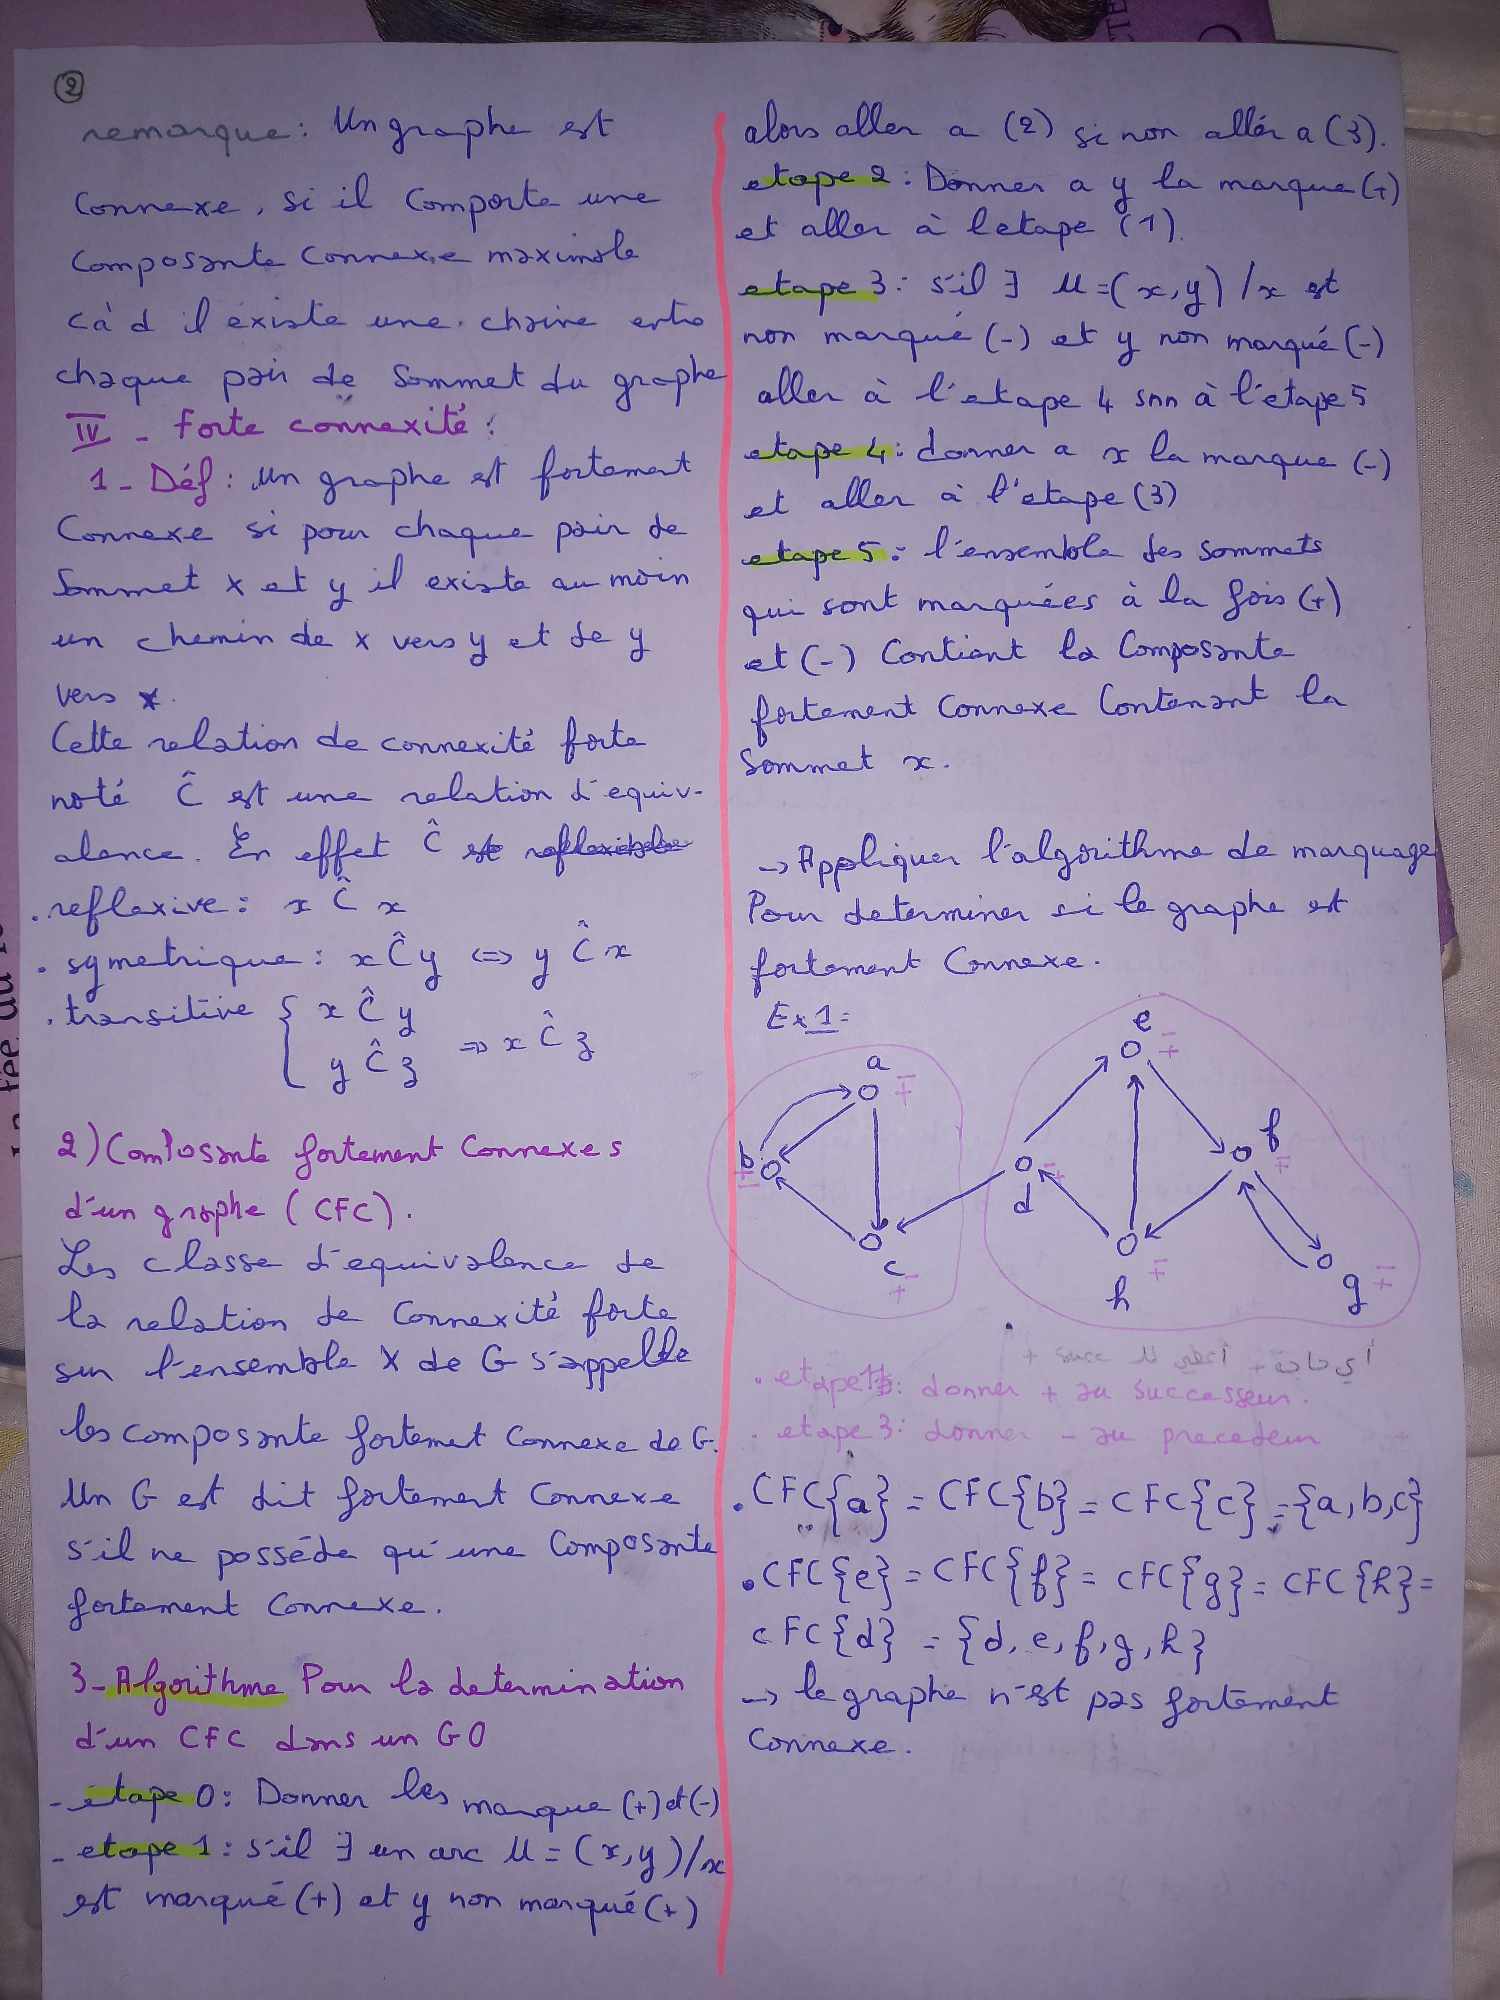 2
remarque: Un graphe est
connexe, si il comporte une
composante connexe maximale
càd il éxiste une chaine entre
chaque pair de sommet du graphe
IV - Forte connexité:
1 - Déf: Un graphe est fortement
connexe si pour chaque pair de
sommet x et y il existe au moin
un chemin de x vers y et de y
vers x.
Cette relation de connexité forte
noté Ĉ est une relation d'equiv-
alence. En effet Ĉ est
. reflexive: x Ĉ x
. symetrique: x Ĉ y <=> y Ĉ x
. transitive { x Ĉ y
y Ĉ z => x Ĉ z
2) Composante fortement connexes
d'un graphe (CFC).
Les classe d'equivalence de
la relation de connexité forte
sur l'ensemble X de G s'appelle
les composante fortemet connexe de G.
Un G est dit fortement connexe
s'il ne posséde qu'une composante
fortement connexe.
3- Algorithme Pour la determination
d'un CFC dans un GO
- etape 0: Donner les marque (+) et (-)
- etape 1: s'il ∃ un arc U = (x,y)/x
est marqué (+) et y non marqué (+)
alors aller a (2) si non allér a (3).
etape 2: Donner a y la marque (+)
et aller à letape (1).
etape 3: s'il ∃ U=(x,y)/x est
non marqué (-) et y non marqué (-)
aller à l'etape 4 snn à l'étape 5
etape 4: donner a x la marque (-)
et aller à l'etape (3)
etape 5: l'ensemble des sommets
qui sont marquées à la fois (+)
et (-) Contient la composante
fortement connexe contenant la
sommet x.
-> Appliquer l'algorithme de marquage
Pour determiner si le graphe est
fortement connexe.
Ex 1:
a
b
c
d
e
f
g
h
أي حاجة + أعطي لل succ +
. etape 1: donner + au successeur.
. etape 3: donner - au precedeur
. CFC{a} = CFC{b} = CFC{c} = {a,b,c}
. CFC{e} = CFC{f} = CFC{g} = CFC{h} =
CFC{d} = {d,e,f,g,h}
-> le graphe n'est pas fortement
connexe.